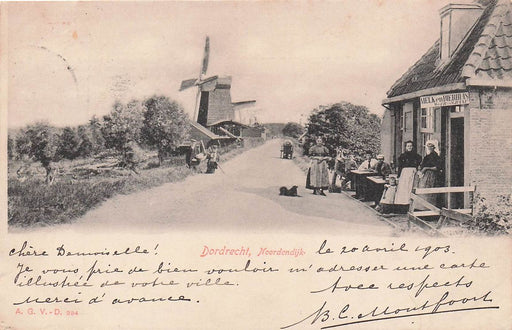 MELK en BIERHUIS
Dordrecht, Noordendijk.
Chère Demoiselle!
le 20 avril 1903.
Je vous prie de bien vouloir m'adresser une carte
illustrée de votre ville.
Avec respects
Merci d'avance.
B.C. Montfoort
A. G. V. - D. 294